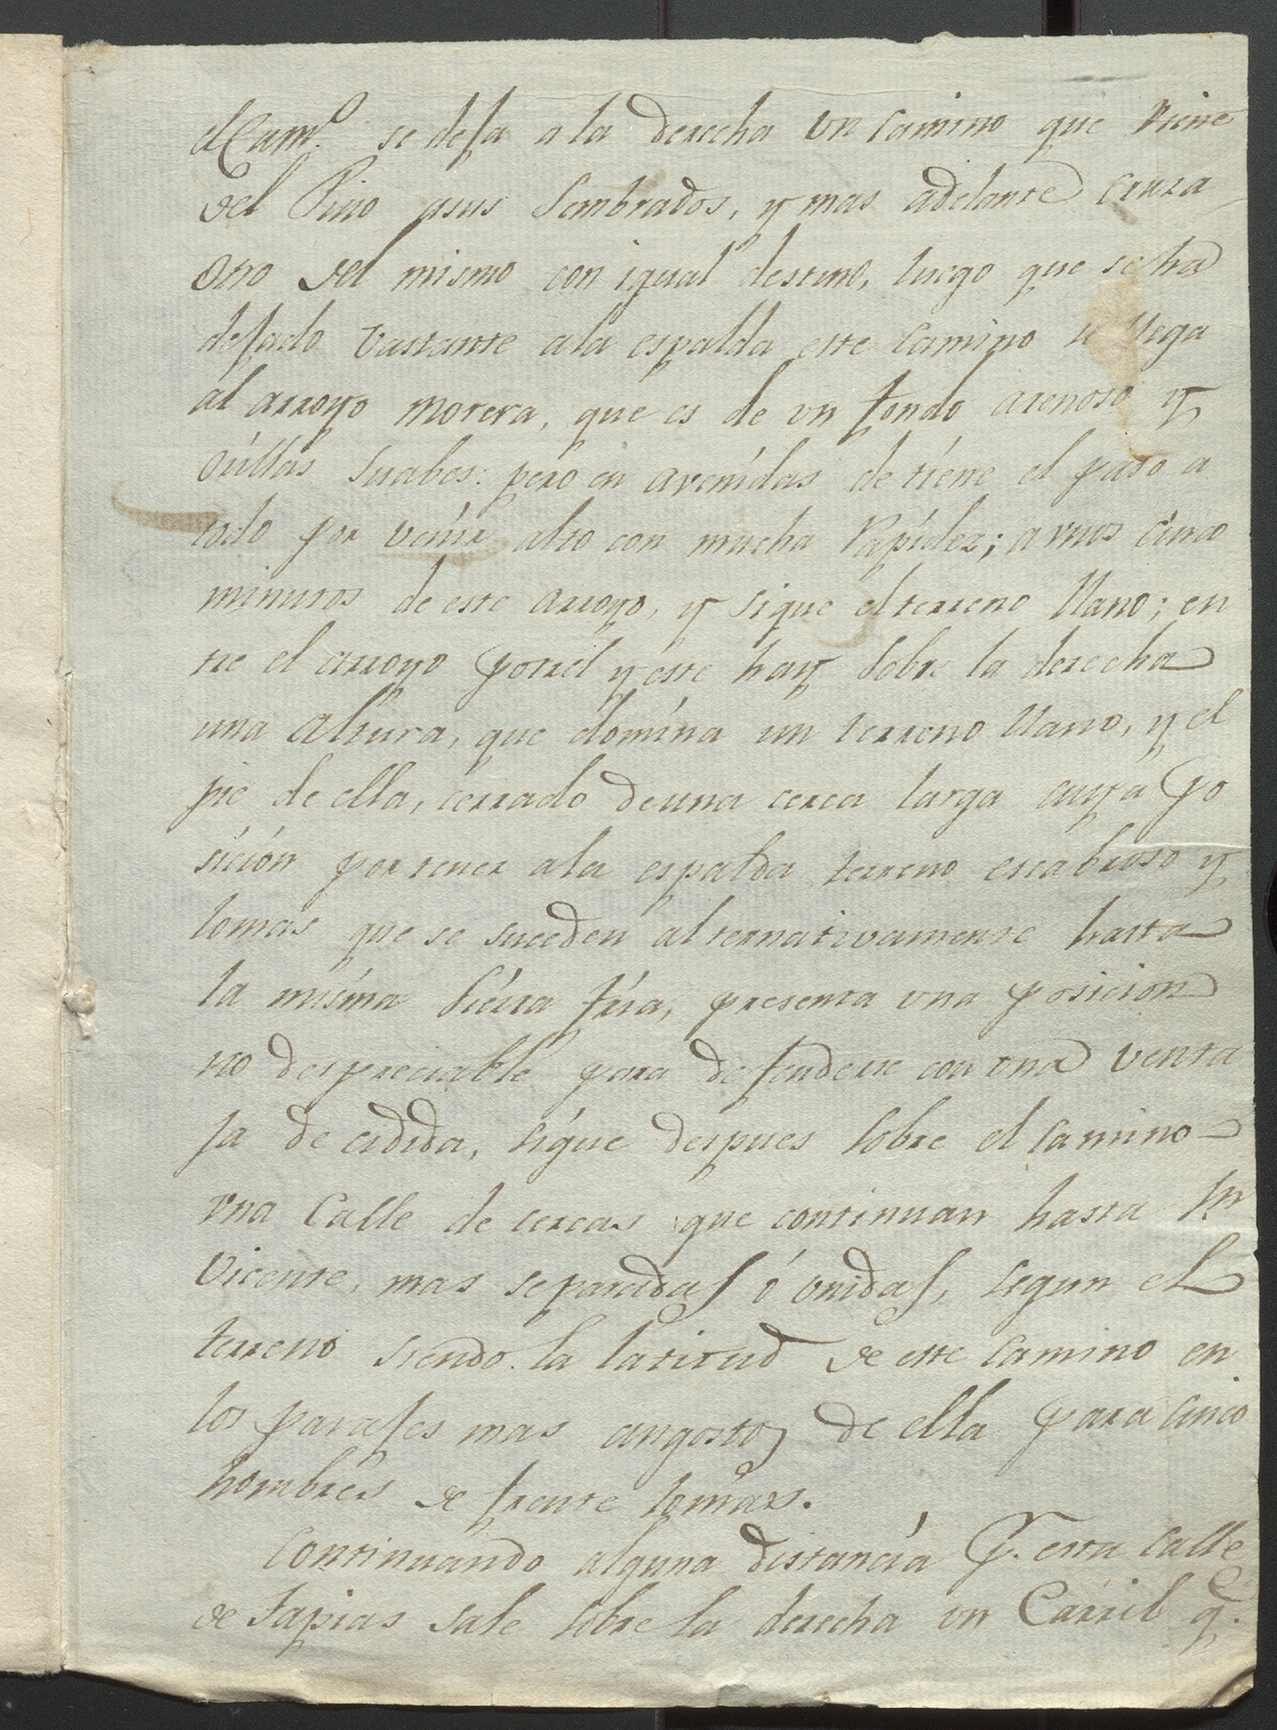 el Cam.º se deja a la derecha un camino que viene
del Pino asus sembrados, y mas adelante cruza
otro del mismo con igual destino, luego que se ha
dejado vastante ala espalda este camino se llega
al arroyo morera, que es de un fondo arenoso y
orillas suabes: pero en avenidas detiene el paso a
todo por venir alto con mucha rapidez; a unos cinco
minutos de este arroyo, y sigue el terreno llano; en
tre el arroyo y este hay sobre la derecha
una altura, que domina un terreno llano, y el
pie de ella, cerrado de una cerca larga cuya po
sición por tener ala espalda terreno escabroso y
lomas que se suceden alternativamente hasta
la misma Sierra fria, presenta una posicion
no despreciable para defenderse con una venta
ja decidida, sigue despues sobre el camino
una Calle de cercas que continuan hasta Sn
Vicente, mas separadas ó unidas, segun el
terreno siendo la latitud de este camino en
los parajes mas angostos de ella para cinco
hombres de frente
Continuando alguna distancia p. esta calle
de tapias sale sobre la derecha un Carril q.e